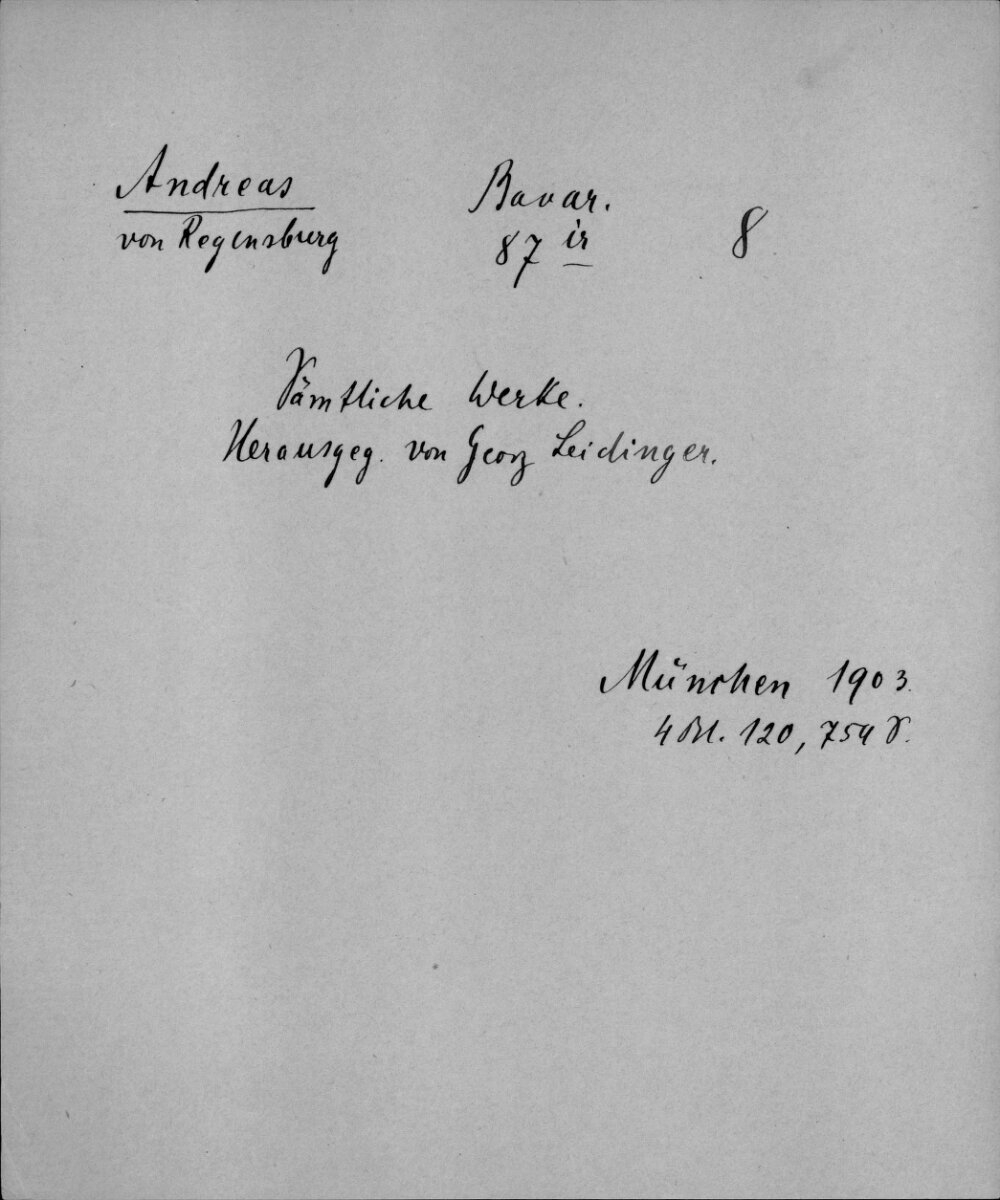 Andreas
von Regensburg
Bavar.
87 ir
8
Sämtliche Werke.
Herausgeg. von Georg Leidinger.
München 1903.
4 Bl. 120, 754 S.